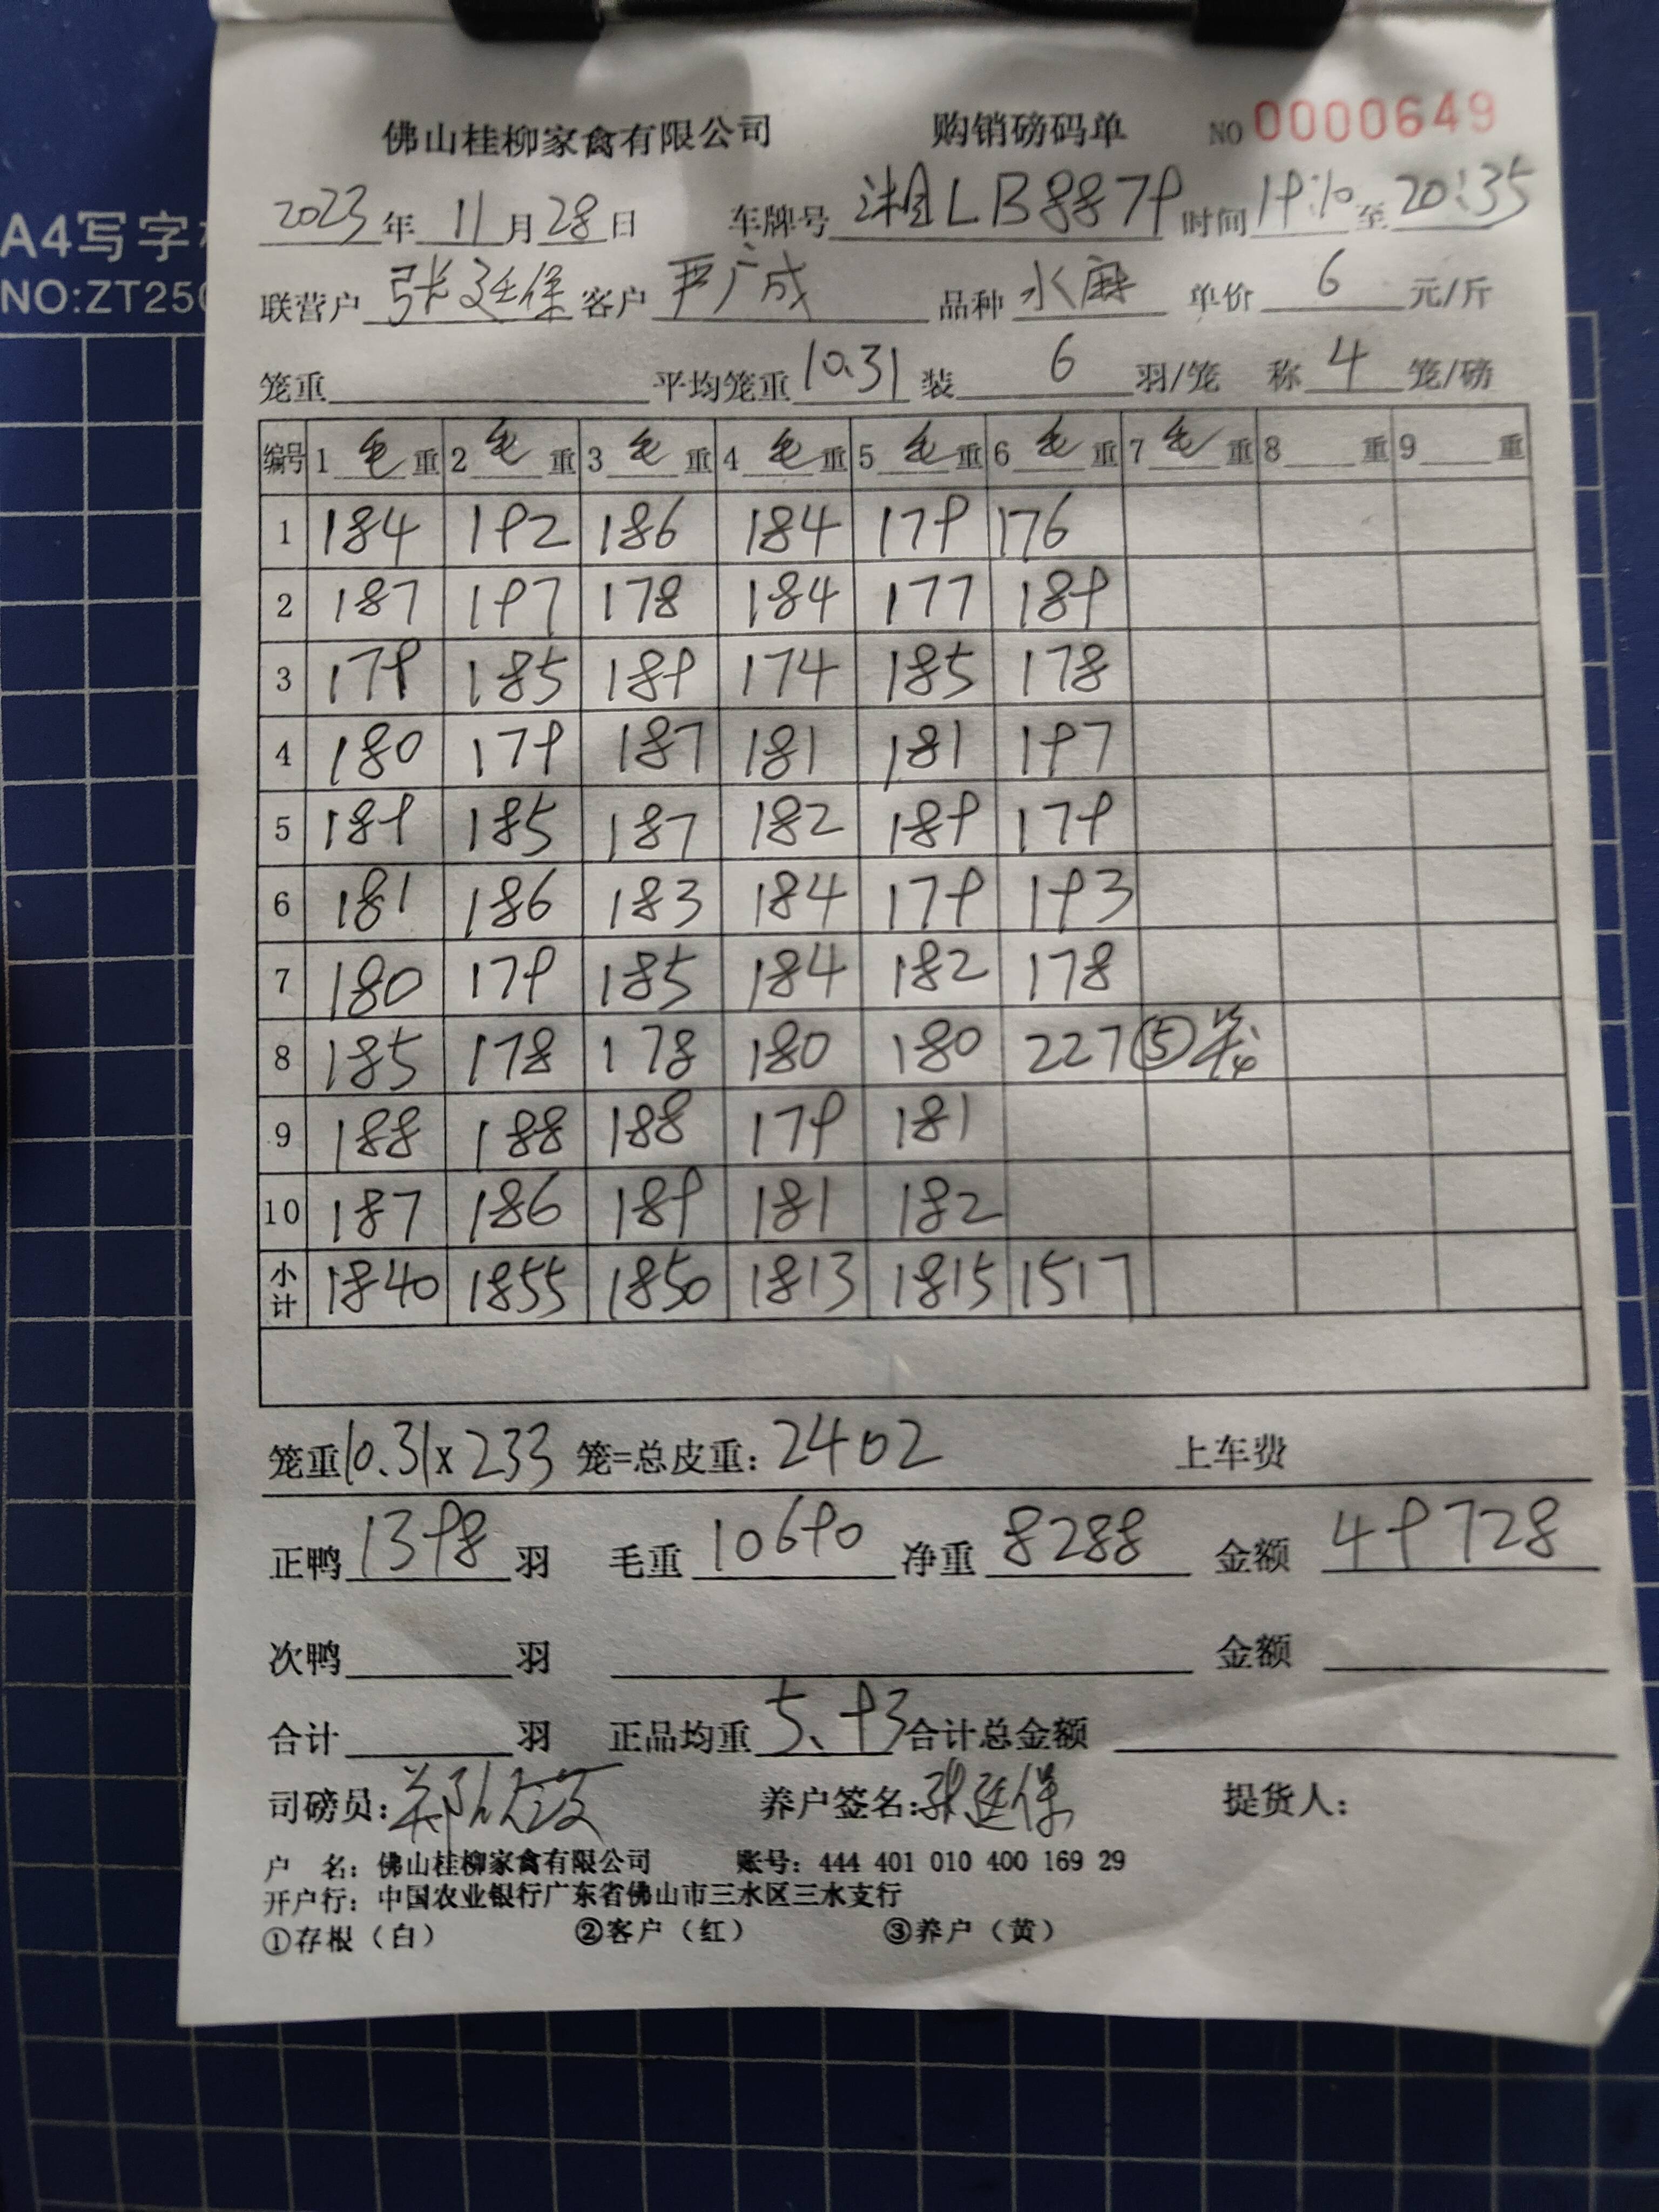 A4写字
NO:ZT250
佛山桂柳家禽有限公司 购销磅码单 NO 0000649
2023年11月28日 车牌号 湘LB8879 时间19:10至20:35
联营户 张廷保 客户 严广成 品种 水麻 单价 6 元/斤
笼重 平均笼重 10.31 装 6 羽/笼 称 4 笼/磅
编号 1 毛 重 2 毛 重 3 毛 重 4 毛 重 5 毛 重 6 毛 重 7 毛 重 8 重 9 重
1 184 192 186 184 179 176
2 187 197 178 184 177 189
3 179 185 189 174 185 178
4 180 179 187 181 181 197
5 189 185 187 182 189 179
6 181 186 183 184 179 193
7 180 179 185 184 182 178
8 185 178 178 180 180 227 ⑤笼
9 188 188 188 179 181
10 187 186 189 181 182
小计 1840 1855 1850 1813 1815 1517
笼重10.31x233 笼=总皮重：2402 上车费
正鸭 1398 羽 毛重 10690 净重 8288 金额 49728
次鸭 羽 金额
合计 羽 正品均重 5.93 合计总金额
司磅员： 养户签名：张廷保 提货人：
户 名：佛山桂柳家禽有限公司 账号：444 401 010 400 169 29
开户行：中国农业银行广东省佛山市三水区三水支行
①存根（白） ②客户（红） ③养户（黄）